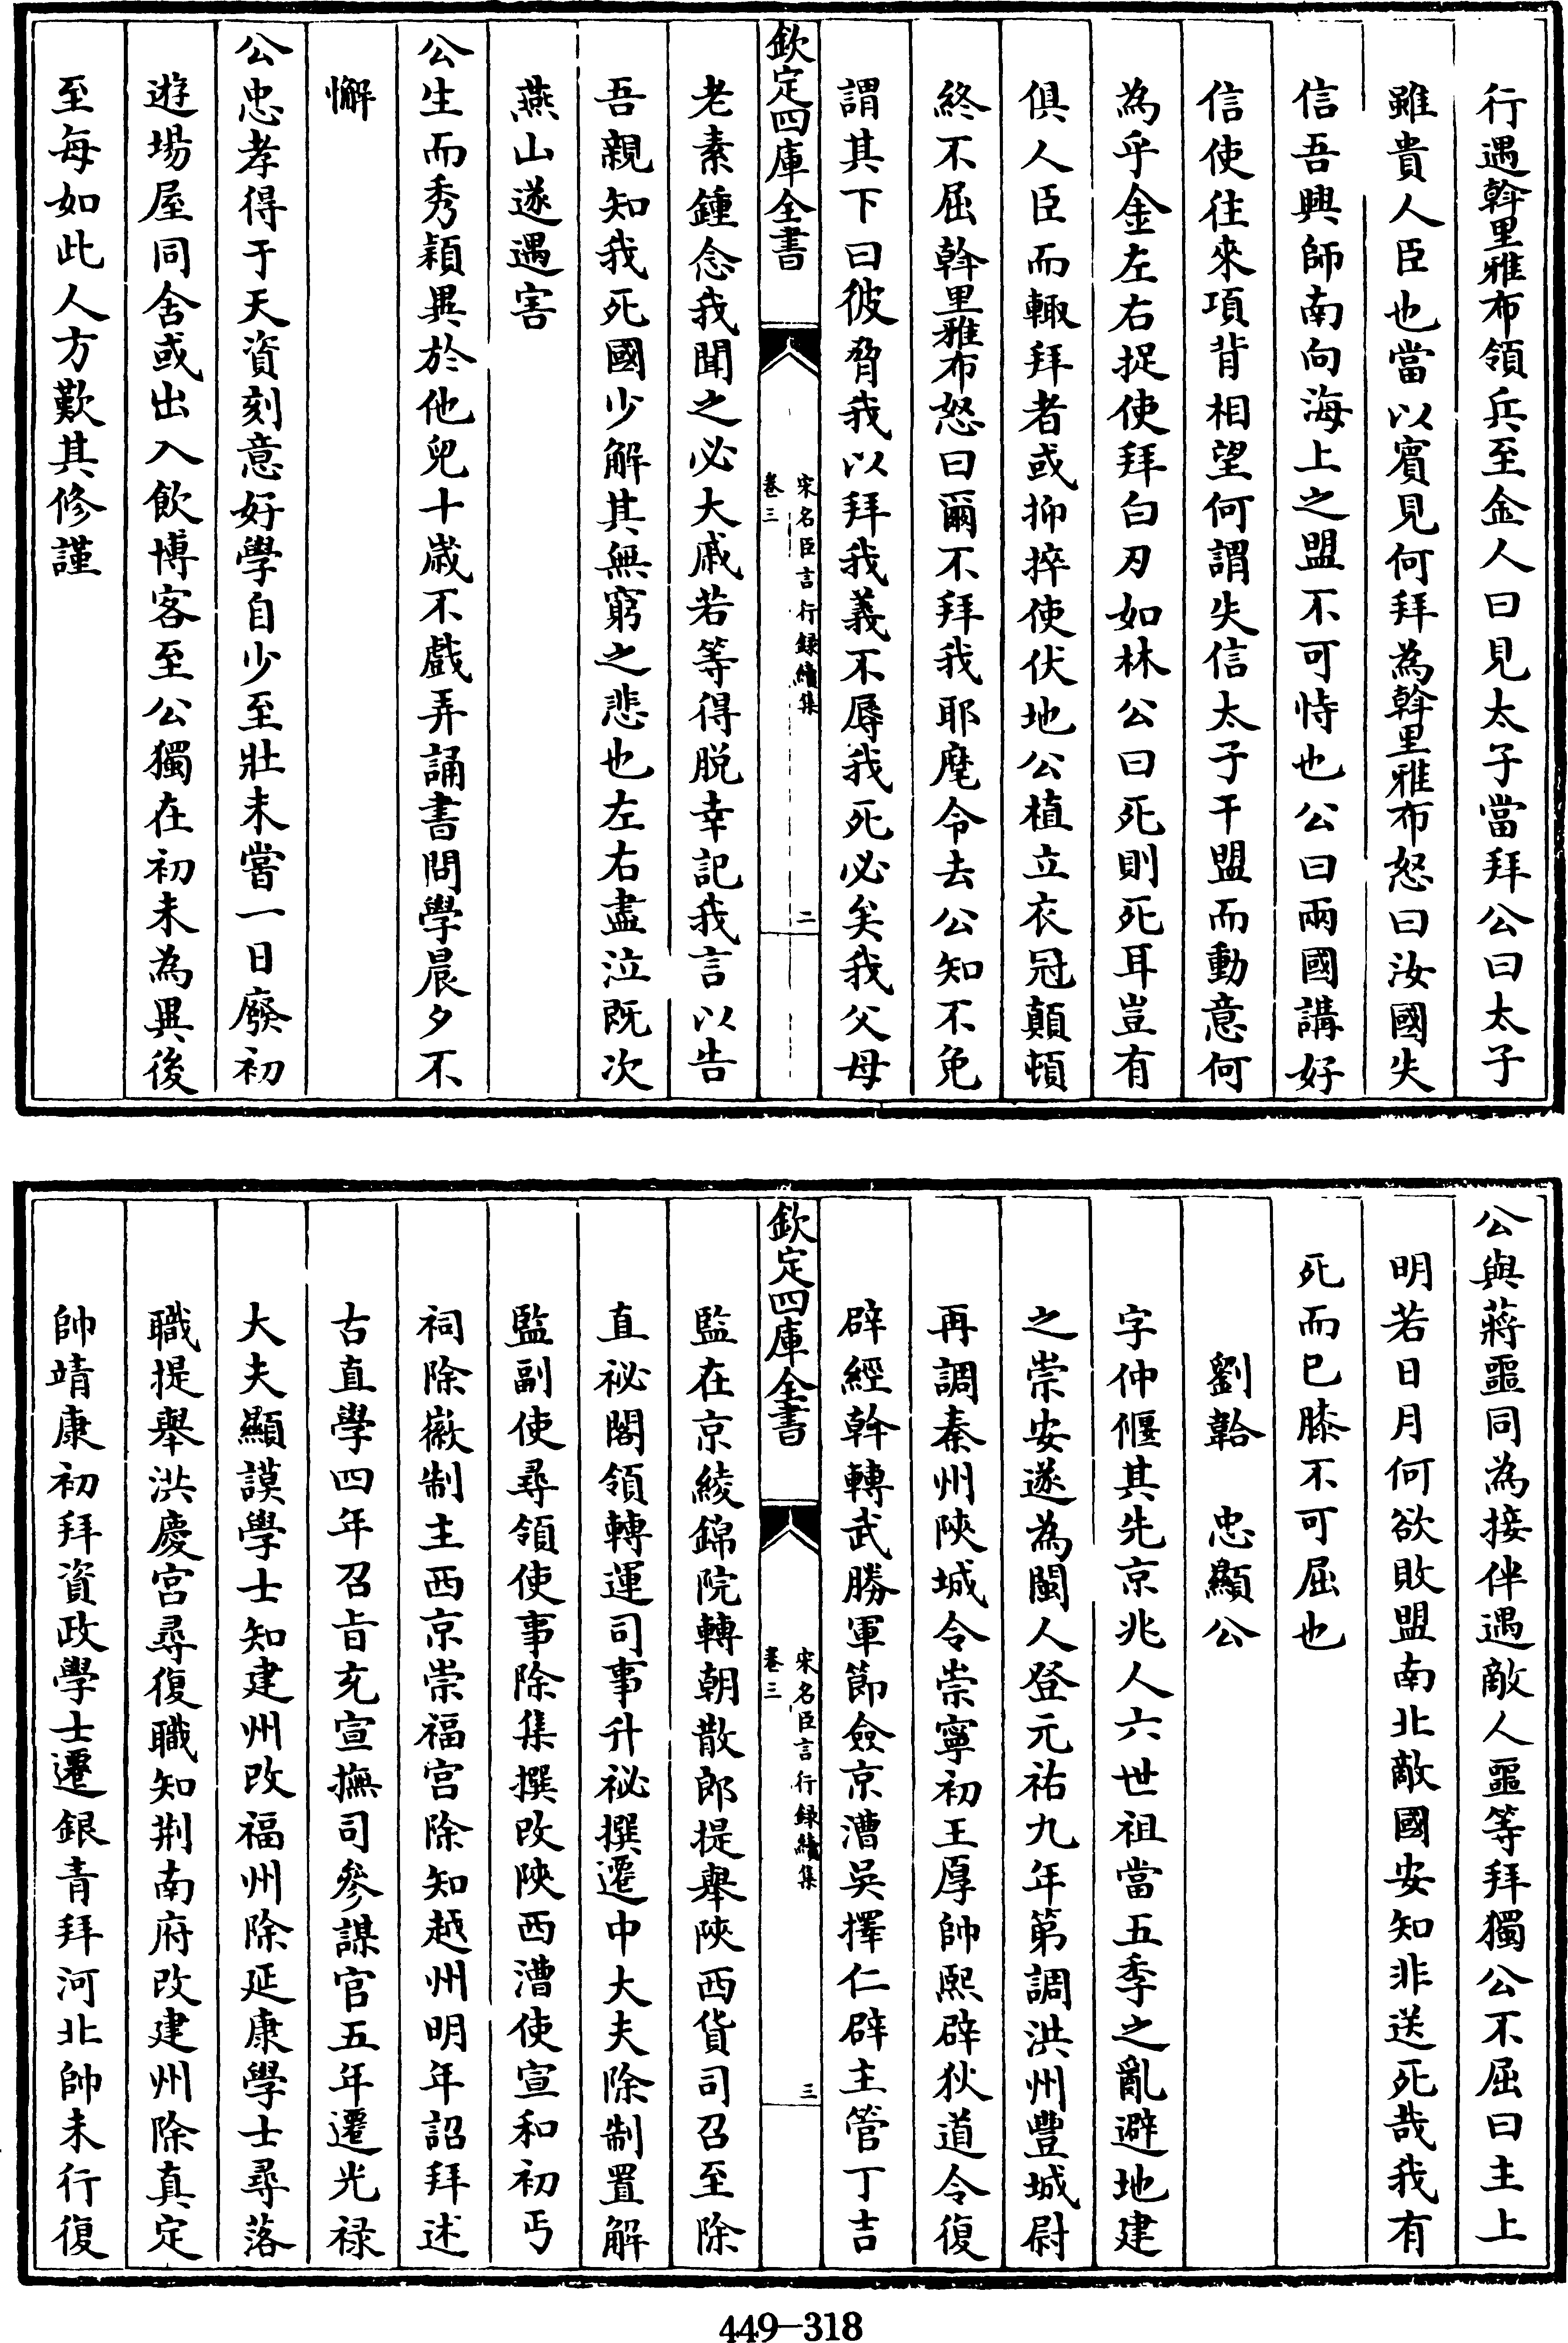 行遇斡里雅布領兵至金人曰見太子當拜公曰太子
雖貴人臣也當以賓見何拜為斡里雅布怒曰汝國失
信吾興師南向海上之盟不可恃也公曰兩國講好
信使往來項背相望何謂失信太子干盟而動意何
為乎金左右捉使拜白刃如林公曰死則死耳豈有
俱人臣而輙拜者或抑捽使伏地公植立衣冠顛頓
終不屈斡里雅布怒曰爾不拜我耶麾令去公知不免
謂其下曰彼脅我以拜我義不辱我死必矣我父母
欽定四庫全書
宋名臣言行録續集
卷三
二
老素鍾念我聞之必大戚若等得脱幸記我言以告
吾親知我死國少解其無窮之悲也左右盡泣既次
燕山遂遇害
公生而秀穎異於他兒十歲不戲弄誦書問學晨夕不
懈
公忠孝得于天資刻意好學自少至壯未嘗一日廢初
遊場屋同舍或出入飲博客至公獨在初未為異後
至每如此人方歎其修謹
公與蔣噩同為接伴遇敵人噩等拜獨公不屈曰主上
明若日月何欲敗盟南北敵國安知非送死哉我有
死而已膝不可屈也
劉韐　忠顯公
字仲偃其先京兆人六世祖當五季之亂避地建
之崇安遂為閩人登元祐九年第調洪州豐城尉
再調秦州陝城令崇寧初王厚帥熙辟狄道令復
辟經幹轉武勝軍節僉京漕吳擇仁辟主管丁吉
欽定四庫全書
宋名臣言行録續集
卷三
三
監在京綾錦院轉朝散郎提舉陝西貨司召至除
直祕閣領轉運司事升祕撰遷中大夫除制置解
監副使尋領使事除集撰改陝西漕使宣和初丐
祠除徽制主西京崇福宫除知越州明年詔拜述
古直學四年召㫖充宣撫司參謀官五年遷光禄
大夫顯謨學士知建州改福州除延康學士尋落
職提舉洪慶宫尋復職知荆南府改建州除真定
帥靖康初拜資政學士遷銀青拜河北帥未行復
449-318